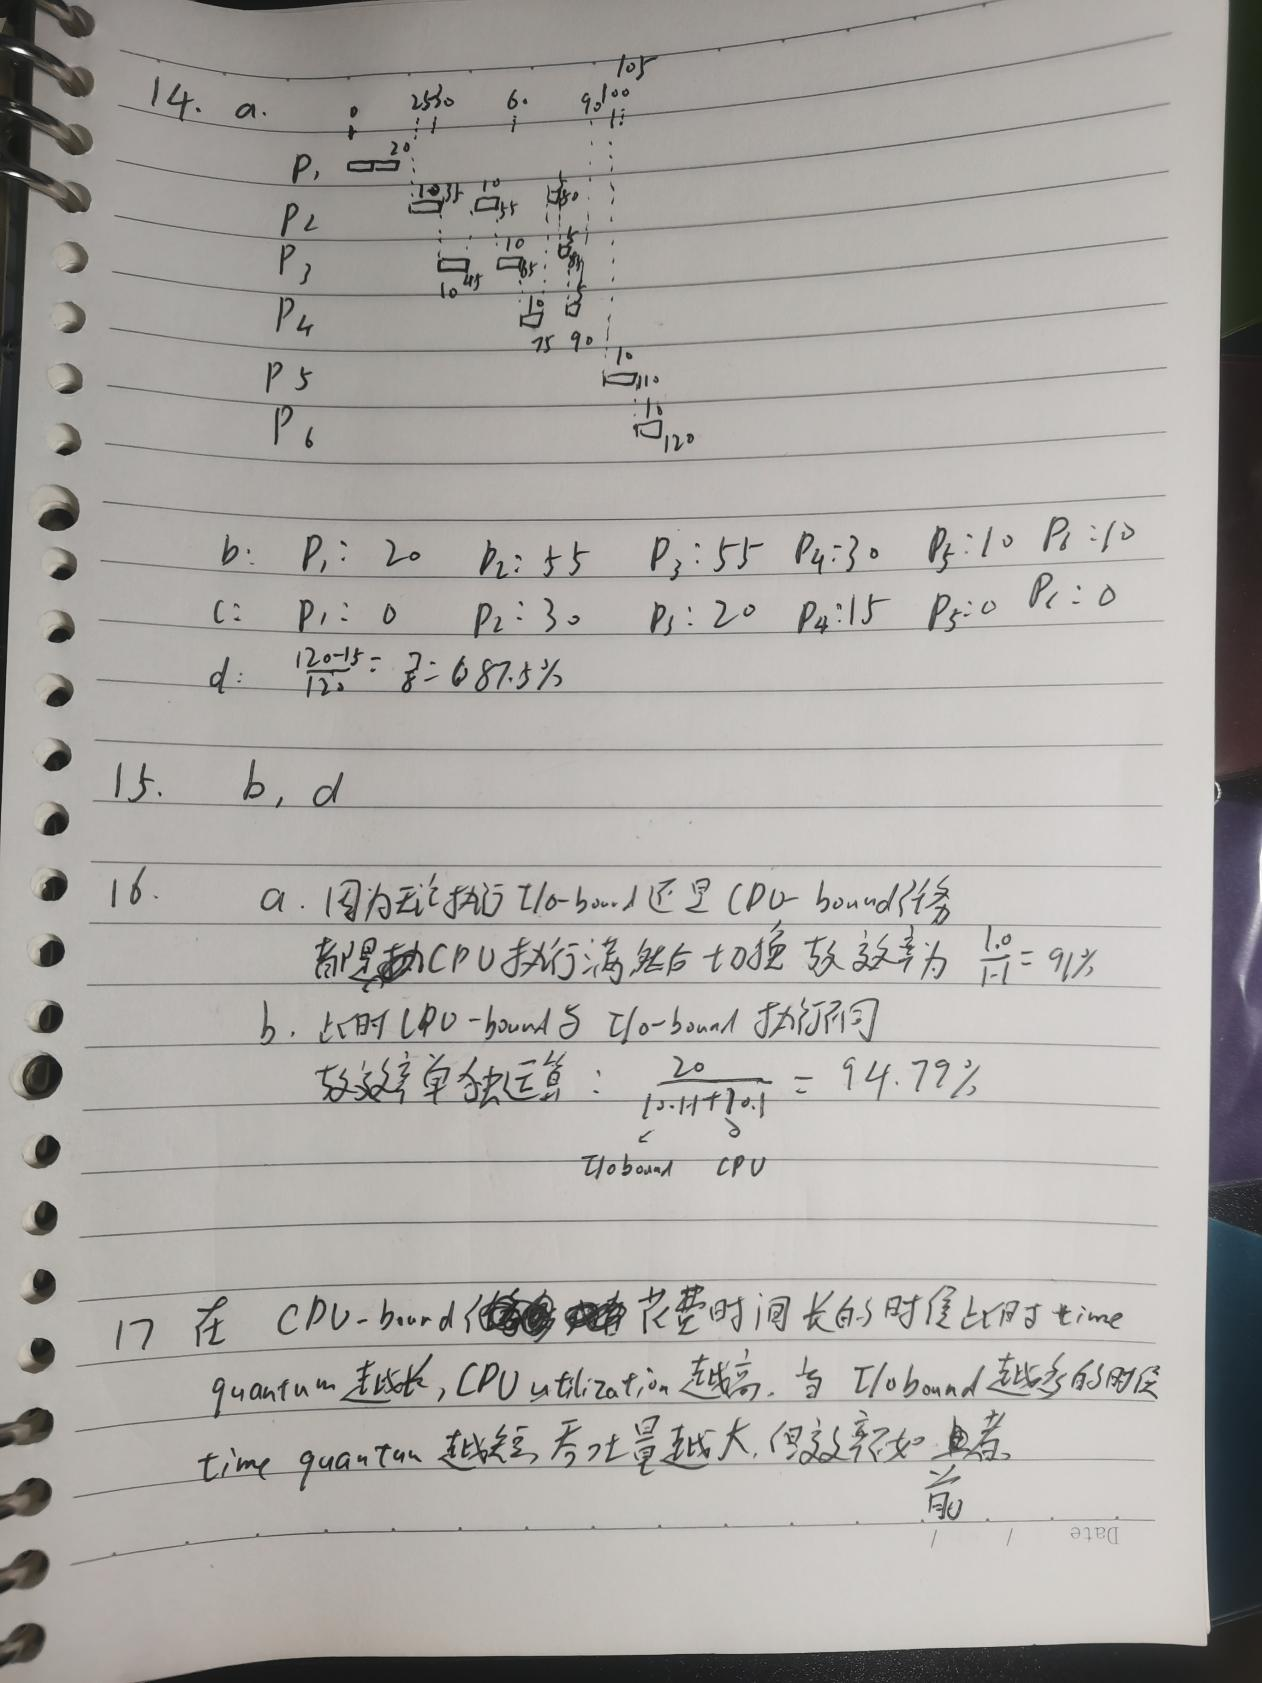 14. a. 0 25 30 60 90 100 105
P1 20
P2 10 35 10 55 5 80
P3 10 45 10 65 5 85
P4 10 75 5 90
P5 10 110
P6 10 120
b: P1: 20 P2: 55 P3: 55 P4: 30 P5: 10 P6: 10
c: P1: 0 P2: 30 P3: 20 P4: 15 P5: 0 P6: 0
d: 120-15/120 = 7/8 = 87.5%
15. b, d
16. a. 因为无论执行 I/o-bound 还是 CPU-bound任务
都是 CPU 执行满然后切换 故效率为 1.0/1.1 = 91%
b. 此时 CPU-bound 与 I/o-bound 执行不同
故效率单独运算: 20/10.11+10.1 = 94.79%
I/o bound CPU
17 在 CPU-bound 花费时间长的时候此时 time
quantum 越长, CPU utilization 越高. 当 I/o bound 越多的时候
time quantum 越短, 吞吐量越大. 但效率不如 者.
前
Date